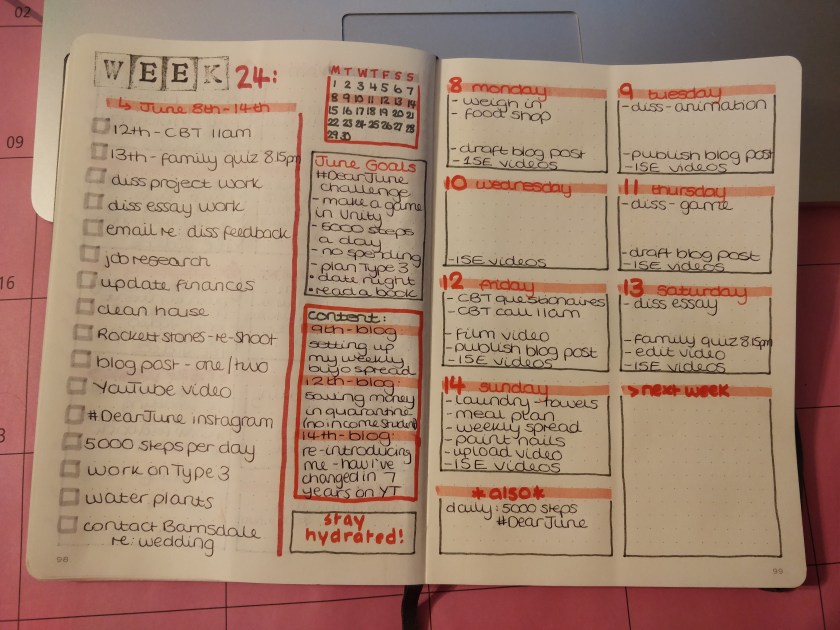 WEEK 24:
↳ June 8th-14th
12th - CBT 11am
13th - family quiz 8.15pm
diss project work
diss essay work
email re: diss feedback
job research
update finances
clean house
Rockett stones - re-shoot
blog post - one/two
YouTube video
#DearJune instagram
5000 steps per day
work on Type 3
water plants
contact Barnsdale
re: wedding
98
M T W T F S S
1 2 3 4 5 6 7
8 9 10 11 12 13 14
15 16 17 18 19 20 21
22 23 24 25 26 27 28
29 30
June Goals
#DearJune
challenge
- make a game
in Unity
- 5000 steps
a day
- no spending
- plan Type 3
• date night
• read a book
content:
9th - blog
setting up
my weekly
bujo spread
12th - blog:
saving money
in quarantine
(no income student)
14th - blog:
re-introducing
me - how i've
changed in 7
years on YT
stay
hydrated!
8 monday
- weigh in
- food shop
- draft blog post
- ISE videos
9 tuesday
- diss - animation
- publish blog post
- ISE videos
10 wednesday
- ISE videos
11 thursday
- diss - game
- draft blog post
- ISE videos
12 friday
- CBT questionaires
- CBT call 11am
- film video
- publish blog post
- ISE videos
13 saturday
- diss essay
- family quiz 8.15pm
- edit video
- ISE videos
14 sunday
- laundry - towels
- meal plan
- weekly spread
- paint nails
- upload video
- ISE videos
> next week
*also*
daily: 5000 steps
#DearJune
99
02
09
16
3